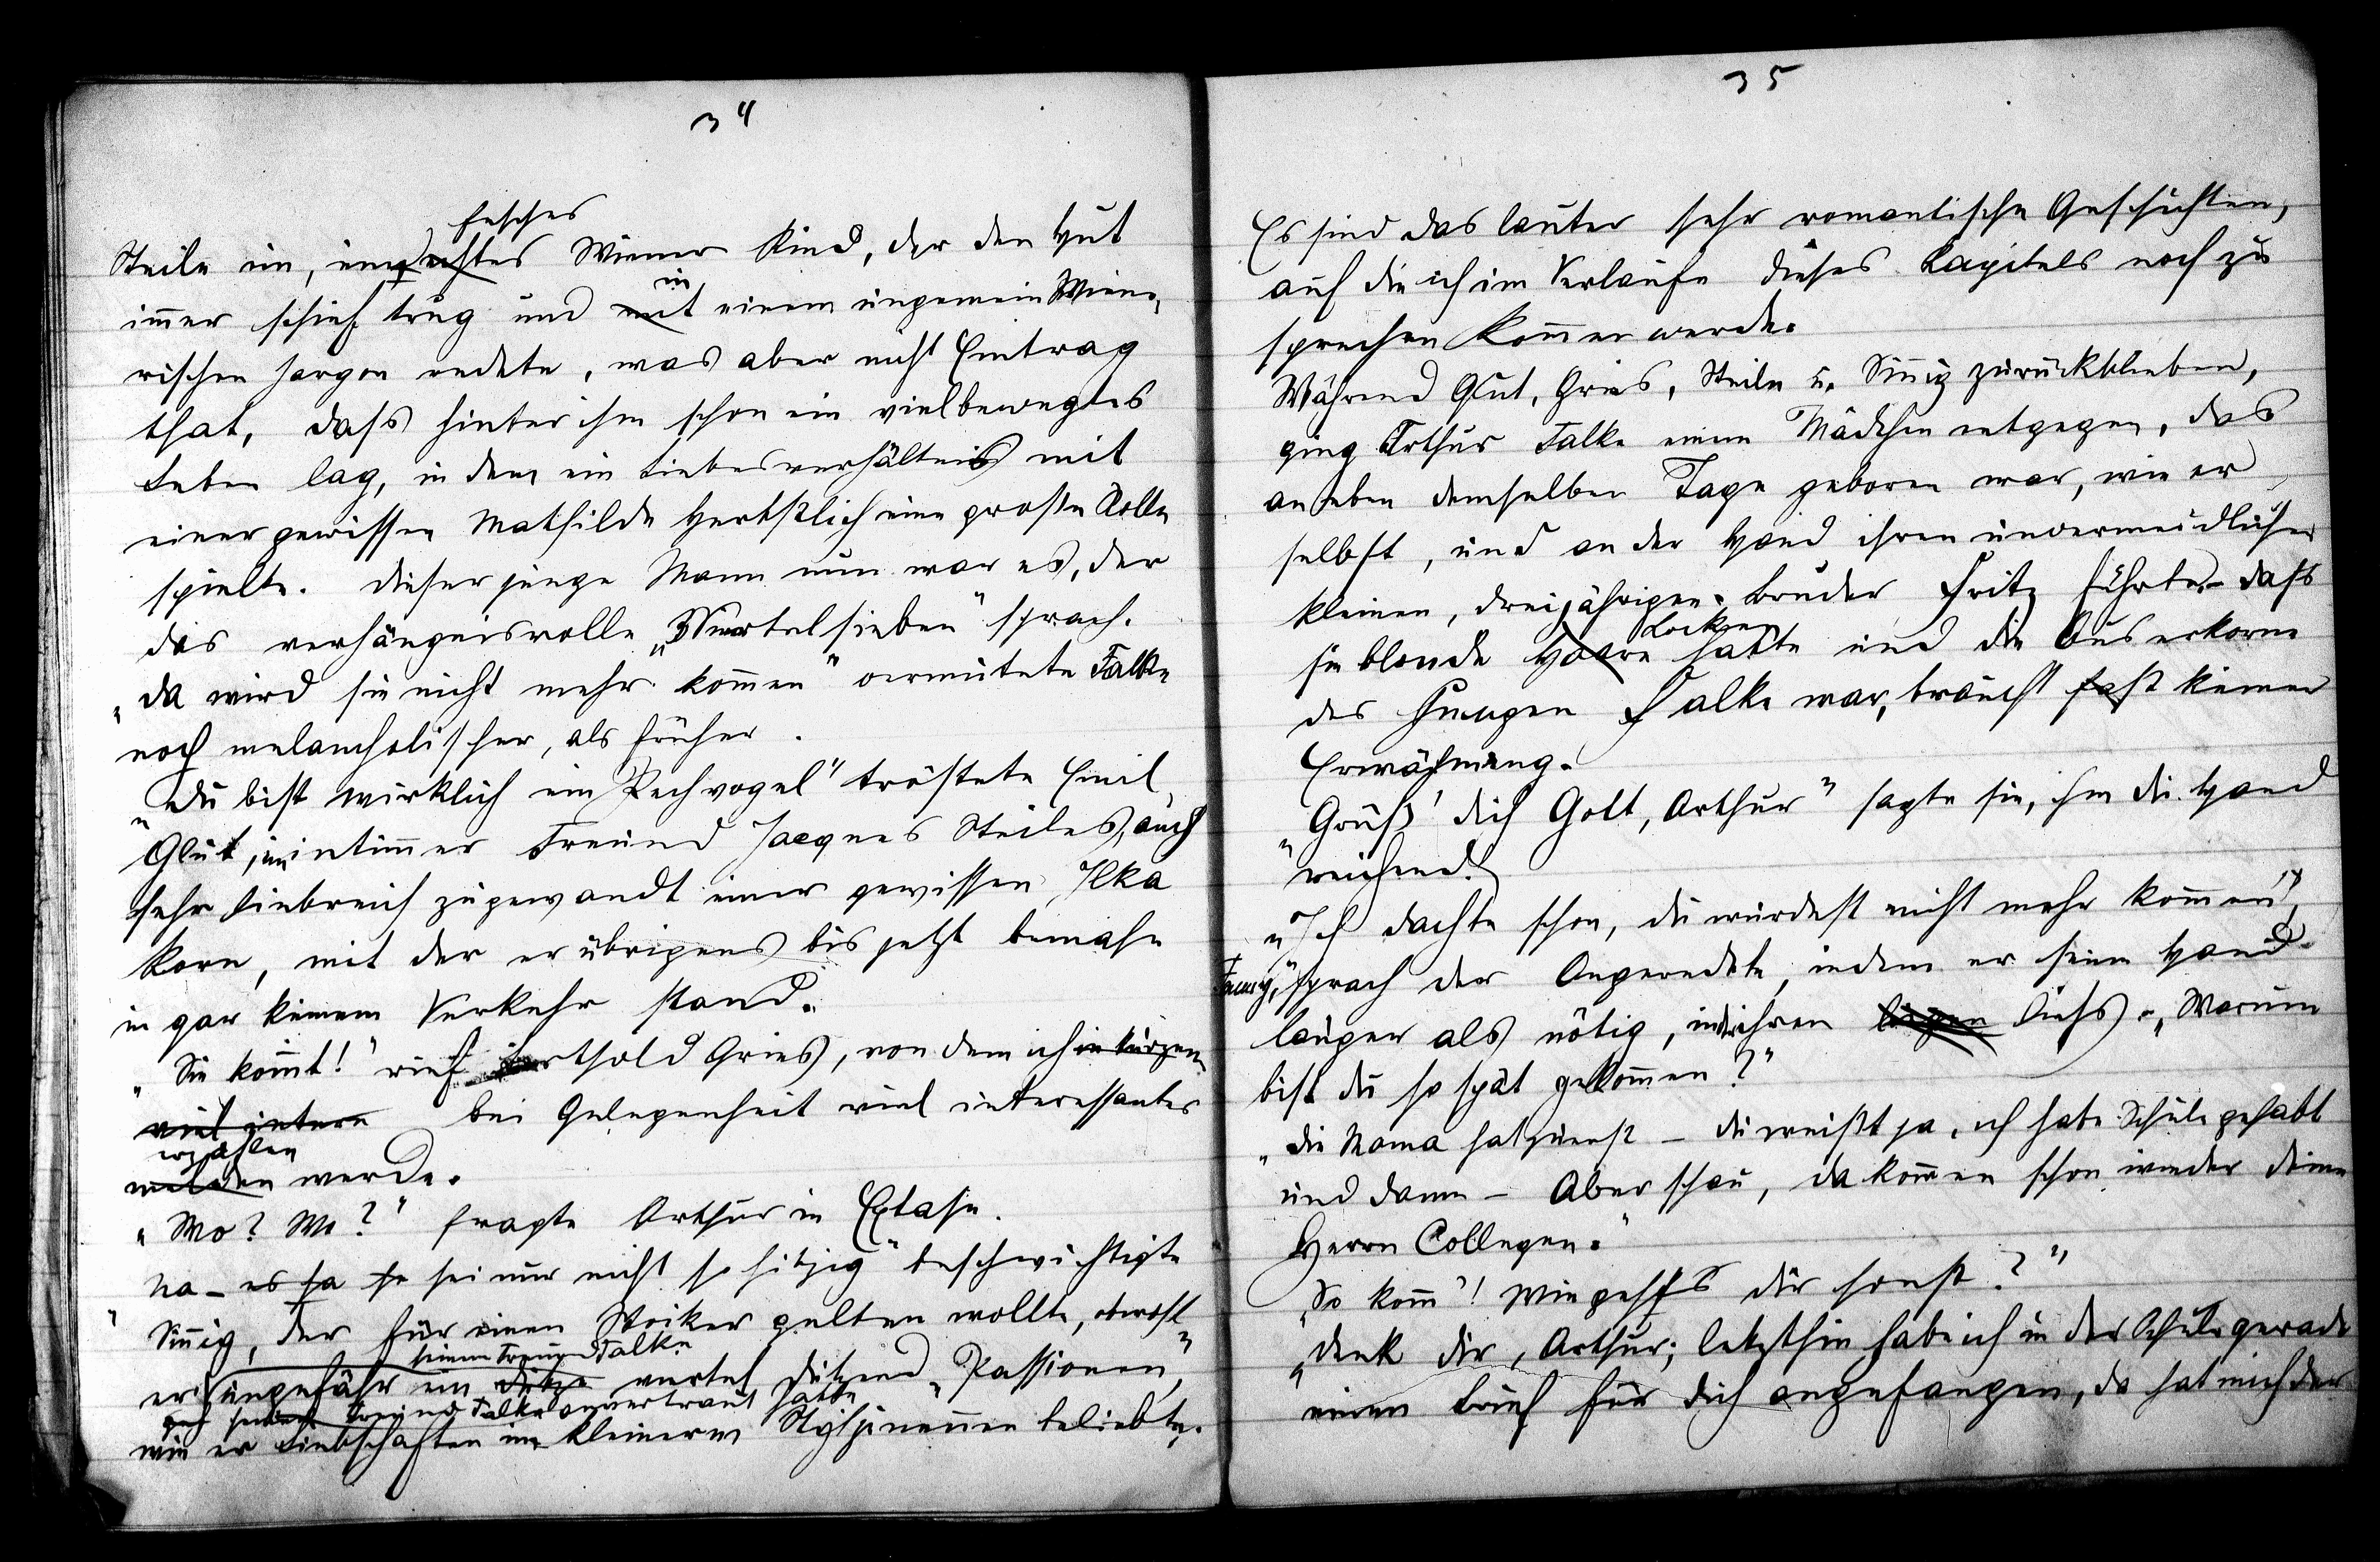 34
fesches
Steile ein, ein echtes Wiener Kind, der den Hut
in
immer schief trug und mit einem ungemein Wiene-
rischen Jargon redete, was aber nicht Eintrag
that, dass hinter ihm schon ein vielbewegtes
Leben lag, in dem ein Liebesverhältnis mit
einer gewissen Mathilde Herbstlich eine große Rolle
spielte. Dieser junge Mann nun war es, der
das verhängnisvolle „3Viertel sieben" sprach.
„Da wird sie nicht mehr kommen" vermutete Falke
noch melancholischer, als früher.
„Du bist wirklich ein Pechvogel" tröstete Emil
Glut, ein intimmer Freund Jacques Steiles, auch
sehr liebreich zugewandt einer gewissen Ilka
Korn, mit der er übrigens bis jetzt beinahe
in gar keinem Verkehr stand.
„Sie kommt!" rief Berthold Gries, von dem ich in kurzem
viel intere bei Gelegenheit viel interessantes
erzählen
melden werde.
„Wo? Wo?" fragte Arthur in Extase.
„Na - es ja so sei nur nicht so hitzig" beschwichtigte
Sinnig, der für einen Stoiker gelten wollte, obwohl
seinem Freund Falke
er ungefähr ein viertel dutzend „Passionen",
seinem Freund Falke anvertraut hatte
wie er Liebschaften im kleineren Style zu nennen beliebte.
35
Es sind das lauter sehr romantische Geschichten,
auf die ich im Verlaufe dieses Kapitels noch zu
sprechen kommen werde.
Während Glut, Gries, Steile u. Sinnig zurückblieben,
ging Arthur Falke einem Mädchen entgegen, das
an eben demselben Tage geboren war, wie er
selbst, und an der Hand ihren unvermeidlichen
kleinen, dreijährigen Bruder Fritz führte. - dass
Locken
sie blonde Haare hatte und die Auserkorne
des jungen Falke war, braucht fast keiner
Erwähnung.
„Grüß' dich Gott, Arthur" sagte sie, ihm die Hand
reichend.
„Ich dachte schon, du würdest nicht mehr kommen",
Fanny," sprach der Angeredete, indem er seine Hand
länger als nötig, in der ihren liegen ließ. „Warum
bist du so spät gekommen?"
„Die Mama hat zuerst - du weißt ja, ich habe Schule gehabt
und dann - Aber schau, da kommen schon wieder deine
Herrn Collegen."
„So komm'! Wie geht's dir sonst?"
„Denk dir, Arthur; letzthin habe ich in der Schule gerade
einen Brief für dich angefangen, da hat mich der